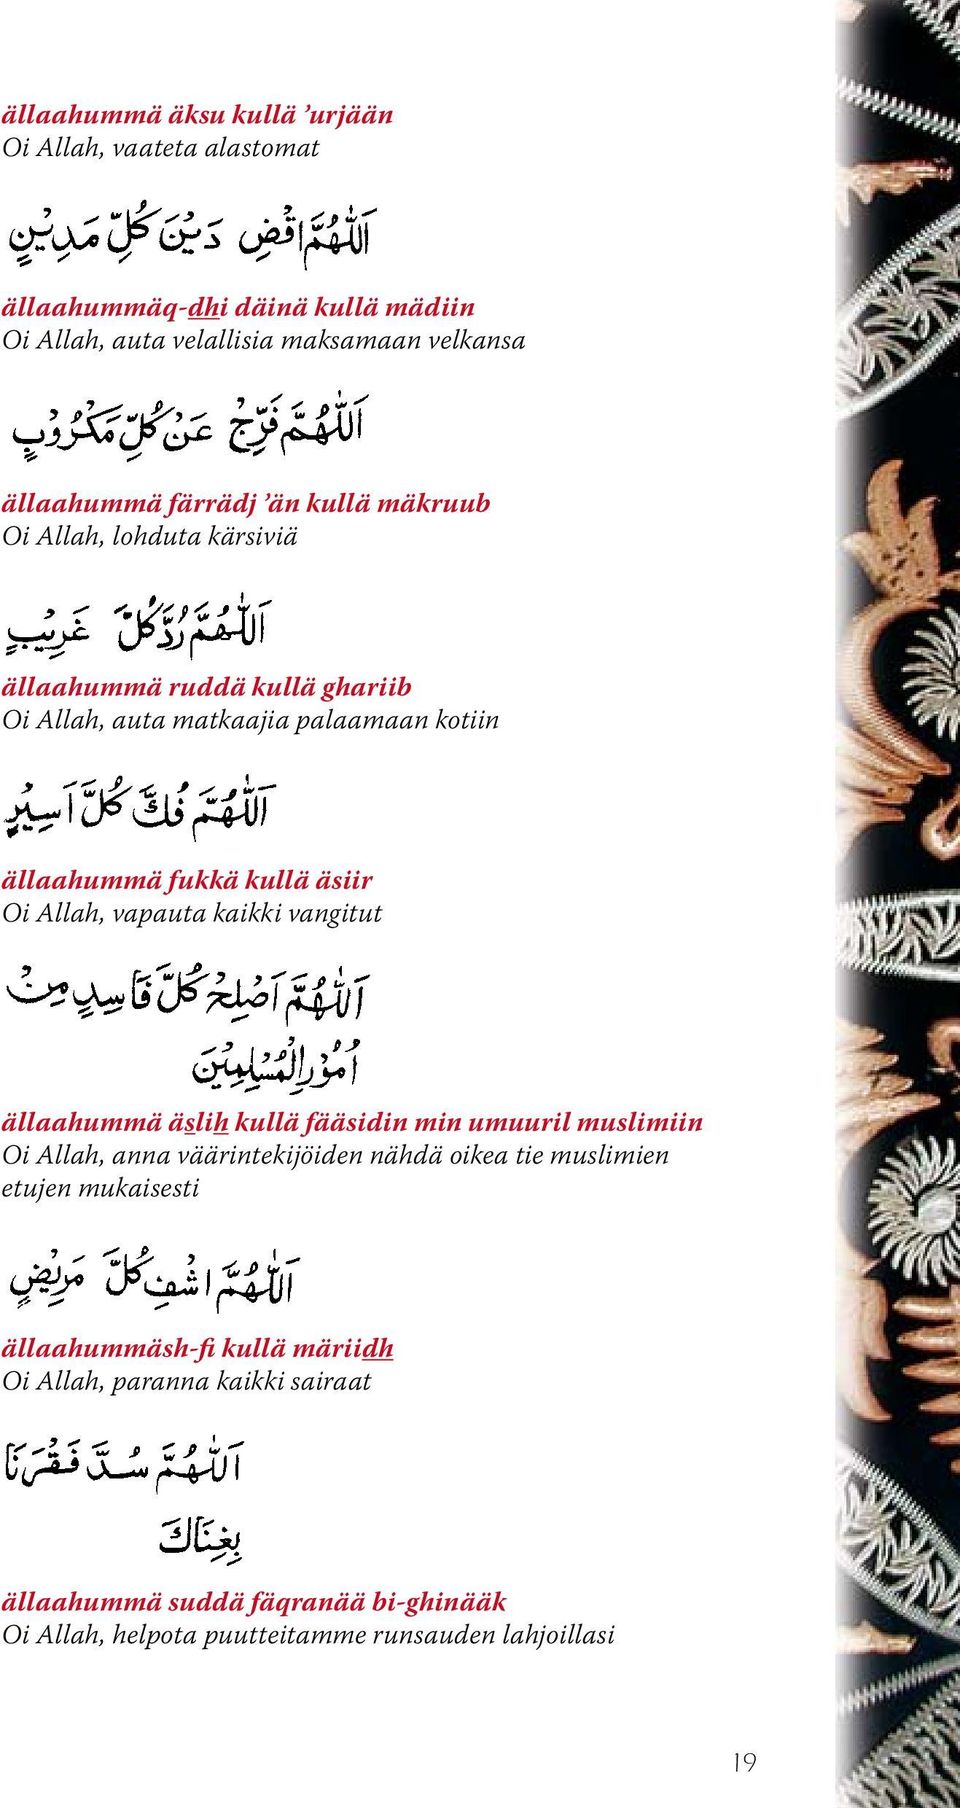 ällaahummä äksu kullä ’urjään
Oi Allah, vaateta alastomat
اَللّٰهُمَّ اقْضِ دَيْنَ كُلِّ مَدِيْنٍ
ällaahummäq-dhi däinä kullä mädiin
Oi Allah, auta velallisia maksamaan velkansa
اَللّٰهُمَّ فَرِّجْ عَنْ كُلِّ مَكْرُوْبٍ
ällaahummä färrädj ’än kullä mäkruub
Oi Allah, lohduta kärsiviä
اَللّٰهُمَّ رُدَّ كُلَّ غَرِيْبٍ
ällaahummä ruddä kullä ghariib
Oi Allah, auta matkaajia palaamaan kotiin
اَللّٰهُمَّ فُكَّ كُلَّ اَسِيْرٍ
ällaahummä fukkä kullä äsiir
Oi Allah, vapauta kaikki vangitut
اَللّٰهُمَّ اَصْلِحْ كُلَّ فَاسِدٍ مِنْ
اُمُوْرِ الْمُسْلِمِيْنَ
ällaahummä äslih kullä fääsidin min umuuril muslimiin
Oi Allah, anna väärintekijöiden nähdä oikea tie muslimien
etujen mukaisesti
اَللّٰهُمَّ اشْفِ كُلَّ مَرِيْضٍ
ällaahummäsh-fi kullä märiidh
Oi Allah, paranna kaikki sairaat
اَللّٰهُمَّ سُدَّ فَقْرَنَا
بِغِنَاكَ
ällaahummä suddä fäqranää bi-ghinääk
Oi Allah, helpota puutteitamme runsauden lahjoillasi
19